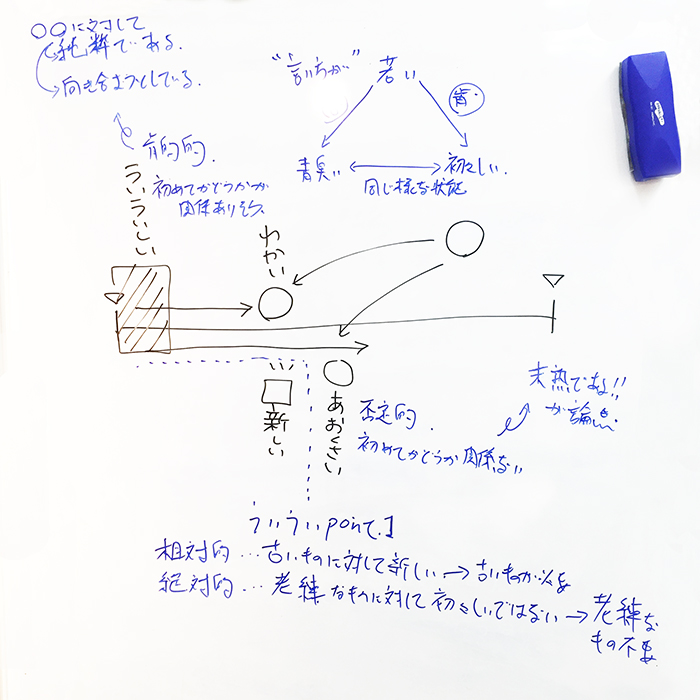 ○○に対して
純粋である.
向き合おうとしている.
"言いちがい"
若い
肯.
青臭い
初々しい.
同じ様な状態
肯定的.
初めてかどうかが
関係ありそう.
ういういしい
わかい
新しい
あおくさい
否定的.
初めてかどうか関係ない
未熟である!!
が論点.
ういういpoint.1
相対的…古いものに対して新しい→古いものが必要
絶対的…老練なものに対して初々しいではない→老練な
もの不要.